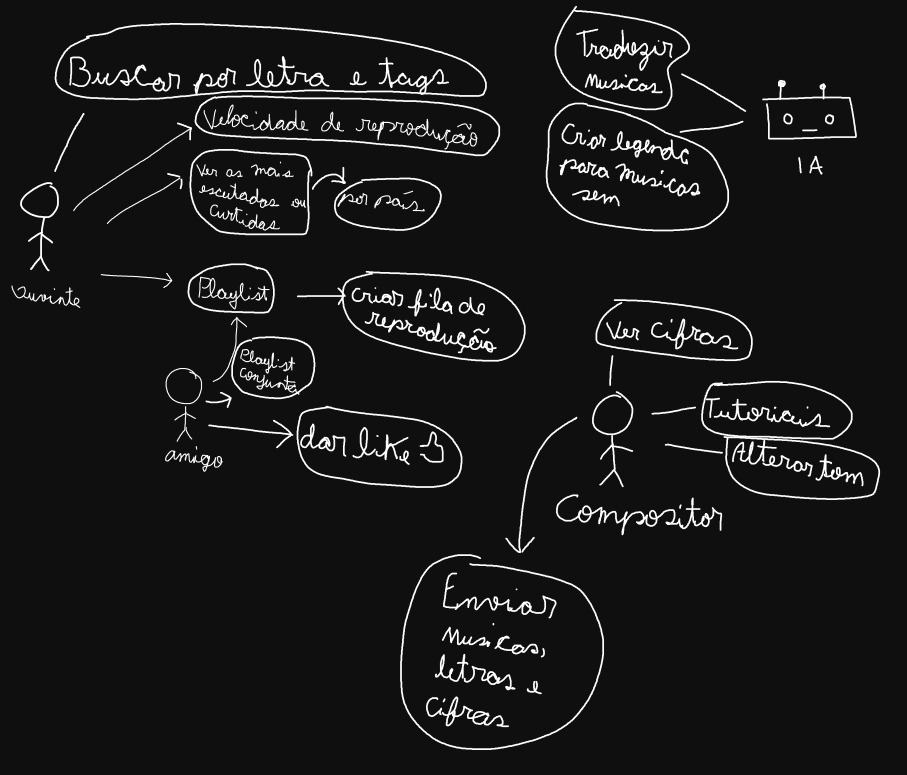 Buscar por letra e tags
Velocidade de reprodução
Ver as mais
escutadas ou
curtidas
por país
Ouvinte
Playlist
Criar fila de
reprodução
Playlist
conjunta
amigo
dar like
Traduzir
Musicas
Criar legenda
para musicas
sem
IA
Ver Cifras
Tutoriais
Alterar tom
Compositor
Enviar
Musicas,
letras e
Cifras